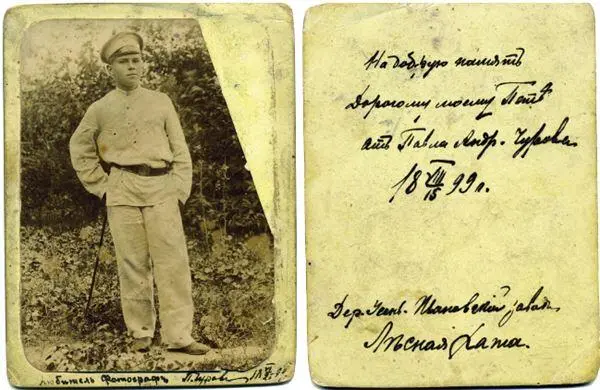 Любитель Фотографъ П. Чуровъ
На добрую память
Дорогому моему Петѣ
отъ Павла Андр. Чурова
18 VII/15 99 г.
Дер. Ивановский завод
Лѣсная Дата.